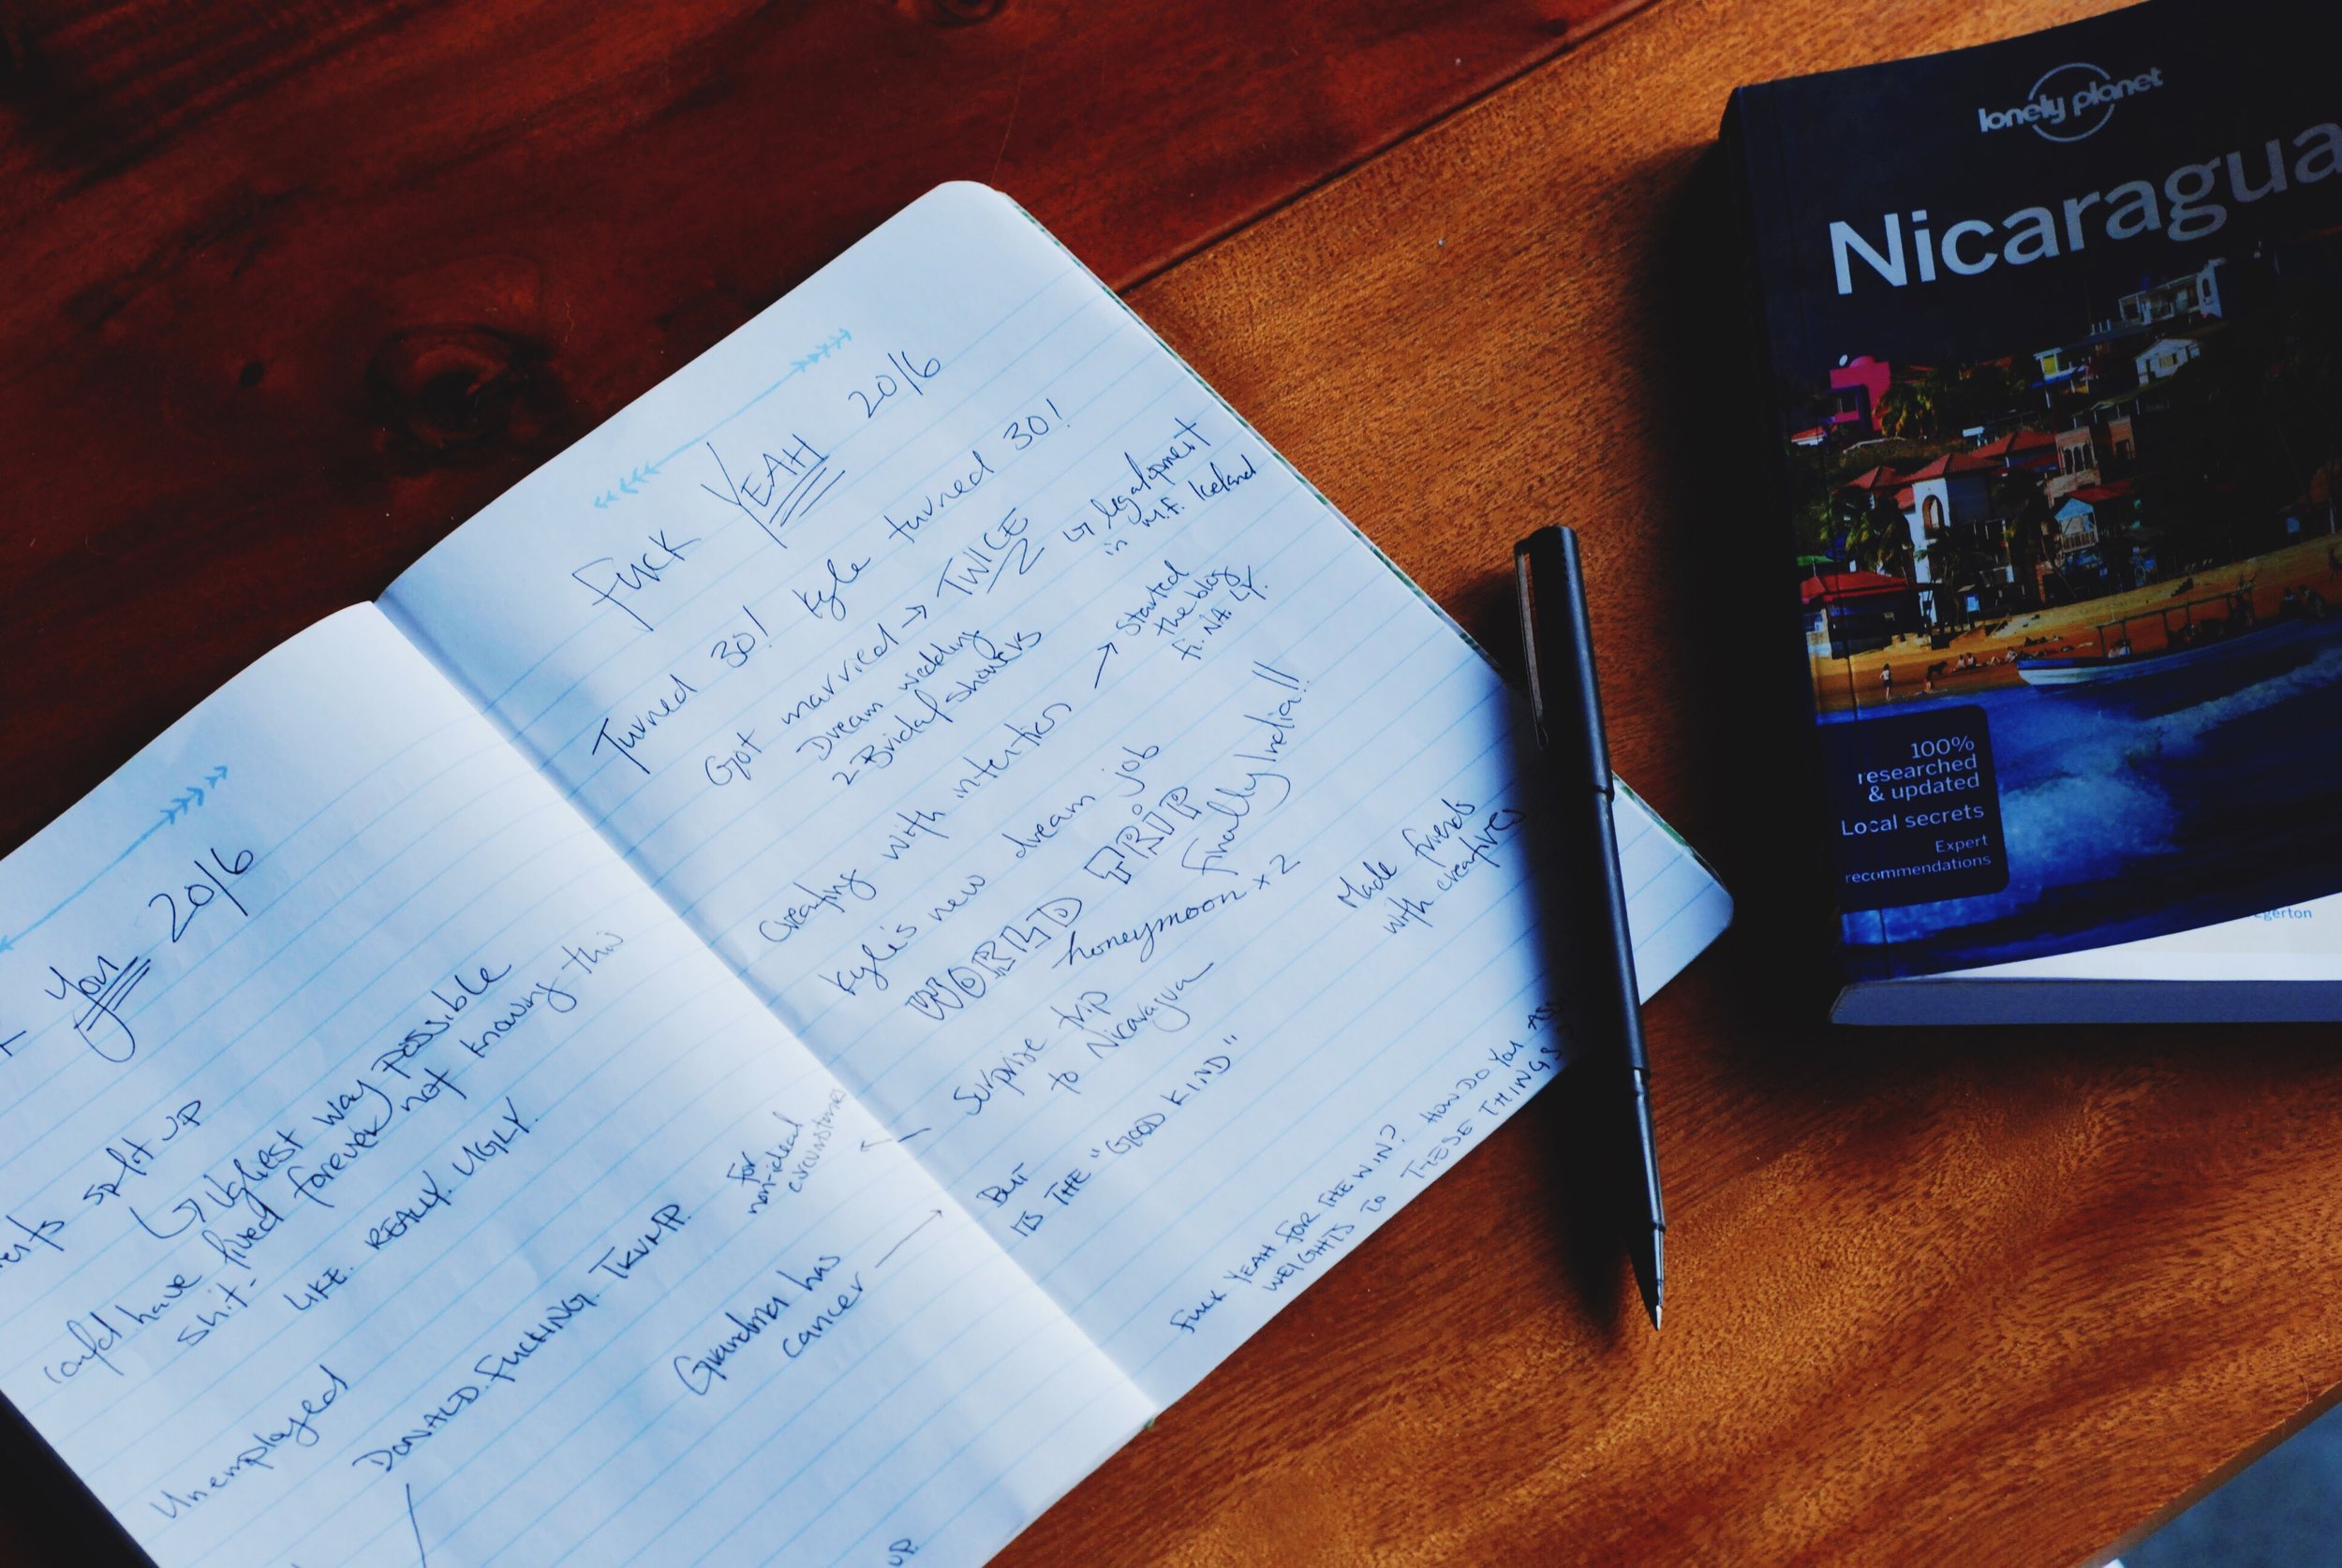 You 2016
split up
↳ Ugliest way possible
could have lived forever not knowing this
shit-
LIKE. REALLY. UGLY.
Unemployed
DONALD. FUCKING. TRUMP.
for
non-ideal
circumstances
Grandma has
cancer →
UP.
FUCK YEAH 2016
Turned 30! Kyle turned 30!
Got married → TWICE
↳ legalopment
in M.F. Iceland
Dream wedding
2 Bridal showers
Creating with intention → Started
the blog
Fi. NA. LY.
Kyle's new dream job
WORLD TRIP
Finally India!!
honeymoon x 2
Made friends
with creatives
Surprise trip
to Nicaragua
BUT
ITS THE "GOOD KIND"
FUCK YEAH FOR THE WIN? HOW DO YOU
WEIGHTS TO THESE THINGS
lonely planet
Nicaragua
100%
researched
& updated
Local secrets
Expert
recommendations
Egerton